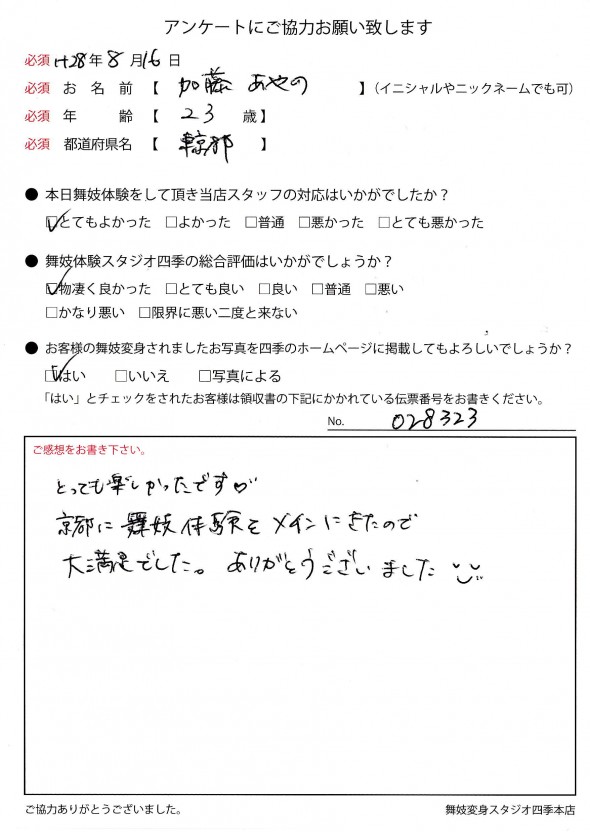 アンケートにご協力お願い致します
必須 H28年 8 月 16 日
必須 お 名 前 【 加藤 あやの 】（イニシャルやニックネームでも可）
必須 年 齢 【 23 歳】
必須 都道府県名 【 東京都 】
● 本日舞妓体験をして頂き当店スタッフの対応はいかがでしたか？
☑とてもよかった □よかった □普通 □悪かった □とても悪かった
● 舞妓体験スタジオ四季の総合評価はいかがでしょうか？
☑物凄く良かった □とても良い □良い □普通 □悪い
□かなり悪い □限界に悪い二度と来ない
● お客様の舞妓変身されましたお写真を四季のホームページに掲載してもよろしいでしょうか？
☑はい □いいえ □写真による
「はい」とチェックをされたお客様は領収書の下記にかかれている伝票番号をお書きください。
No. 028323
ご感想をお書き下さい。
とっても楽しかったです♡
京都に舞妓体験をメインにきたので
大満足でした。ありがとうございました
ご協力ありがとうございました。
舞妓変身スタジオ四季本店